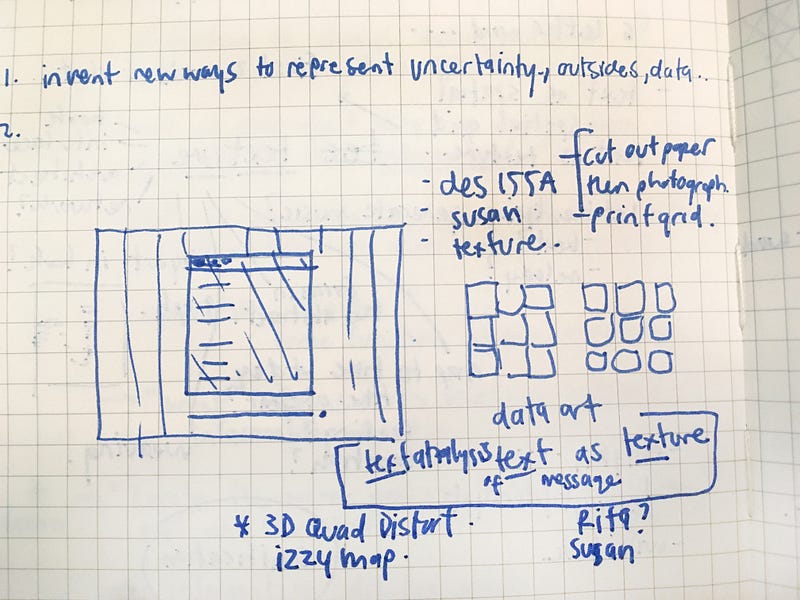 1. invent new ways to represent uncertainty., outsides, data..
2.
- des 155A
- susan
- texture.
- cut out paper
then photograph.
- print grid.
data art
text analysis text as texture
of message
* 3D Quad Distort.
izzy map.
Rita?
susan